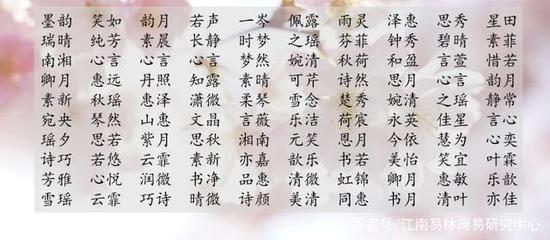 墨韵 笑如 韵月 若声 一岑 佩露 雨灵 泽惠 思秀 星田
瑞晴 纯芳 素晨 长静 时梦 之瑶 芬菲 钟秀 碧晴 素菲
南湘 心言 心言 心言 梦然 婉清 秋荷 和盈 言萱 惜若
卿月 惠远 丹照 知露 素晴 可芹 诗然 思月 心言 韵月
素新 秋瑶 惠泽 潇微 柔琴 雪念 楚秀 婉清 之瑶 静常
宛央 琴然 山惠 文晶 言薇 乐洁 荷宸 永英 佳星 言心
瑶夕 思若 紫月 思秋 湘南 元笑 恩月 今依 慧为 心奕
诗巧 若悠 云霏 素新 亦嘉 歆乐 书若 美怡 笑宜 叶霖
芳雅 心悦 润微 书净 品惠 清微 虹锦 卿月 惠敏 乐歆
雪瑶 云霏 巧诗 晴微 诗颜 美清 同惠 书月 清叶 亦佳
百家号/江南易林周易研究中心